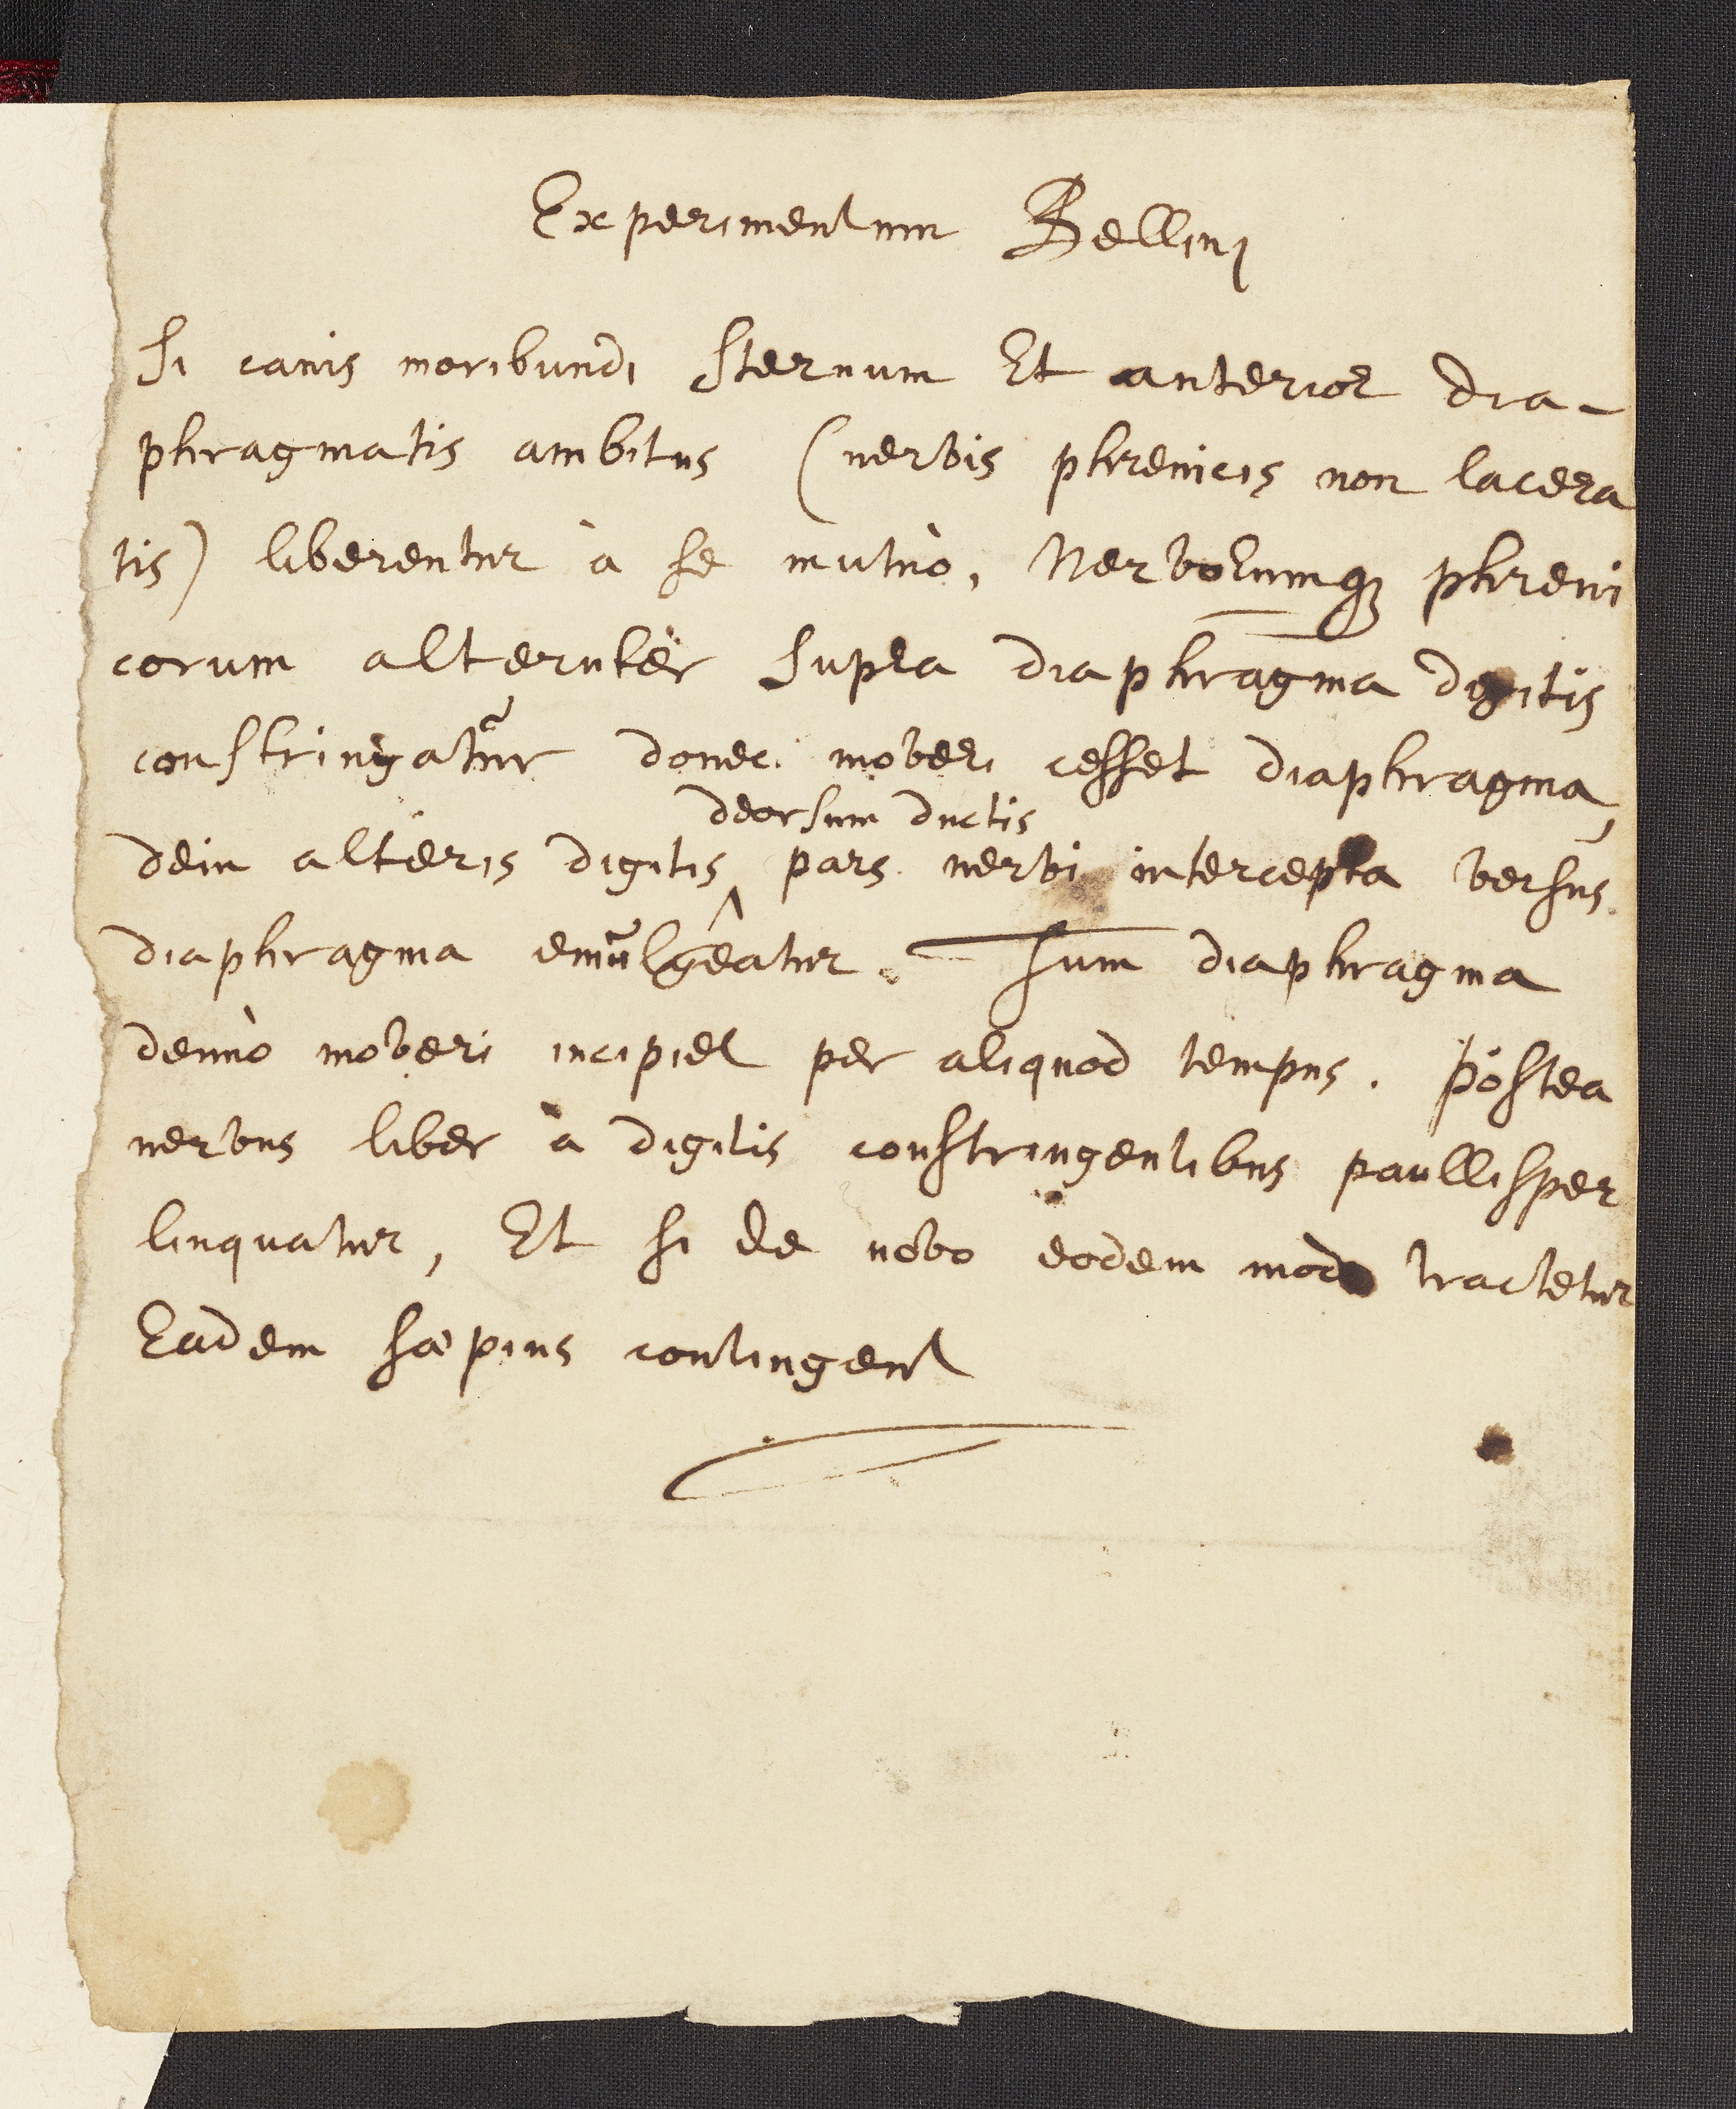 Experimentum Bellini
Si canis moribundi sternum Et anterior dia-
phragmatis ambitus (nervis phrenicis non lacera
tis) liberentur à se mutuò, Nervorumq3 phreni
corum alteruter supra diaphragma digitis
constringatur donec moveri cesset diaphragma,
deorsum ductis
dein alteris digitis ^ pars nervi intercepta versus
diaphragma emulgeatur. Tum diaphragma
denuò moveri incipiet per aliquod tempus. Postea
nervus liber à digitis constringentibus paullisper
linquatur, Et si de novo eodem modo tractetur
Eadem sæpius contingent